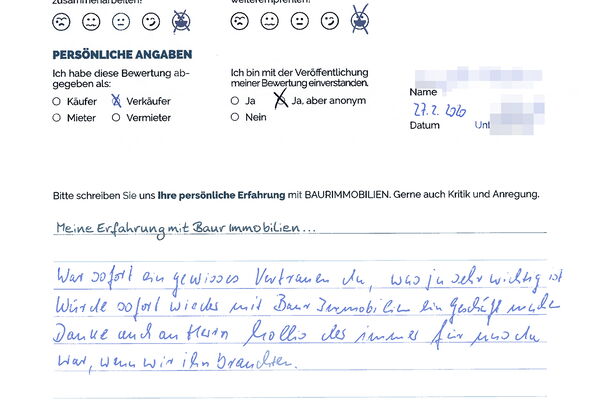 zusammenarbeiten?
weiterempfehlen?
PERSÖNLICHE ANGABEN
Ich habe diese Bewertung ab-
gegeben als:
Käufer Verkäufer
Mieter Vermieter
Ich bin mit der Veröffentlichung
meiner Bewertung einverstanden.
Ja Ja, aber anonym
Nein
Name
27.2.2020
Datum
Bitte schreiben Sie uns Ihre persönliche Erfahrung mit BAURIMMOBILIEN. Gerne auch Kritik und Anregung.
Meine Erfahrung mit Baur Immobilien...
War sofort ein gewisses Vertrauen da, was ja sehr wichtig ist
Würde sofort wieder mit Baur Immobilien ein Geschäft machen
Danke auch an Herrn der immer für uns da
war, wenn wir ihn brauchten.